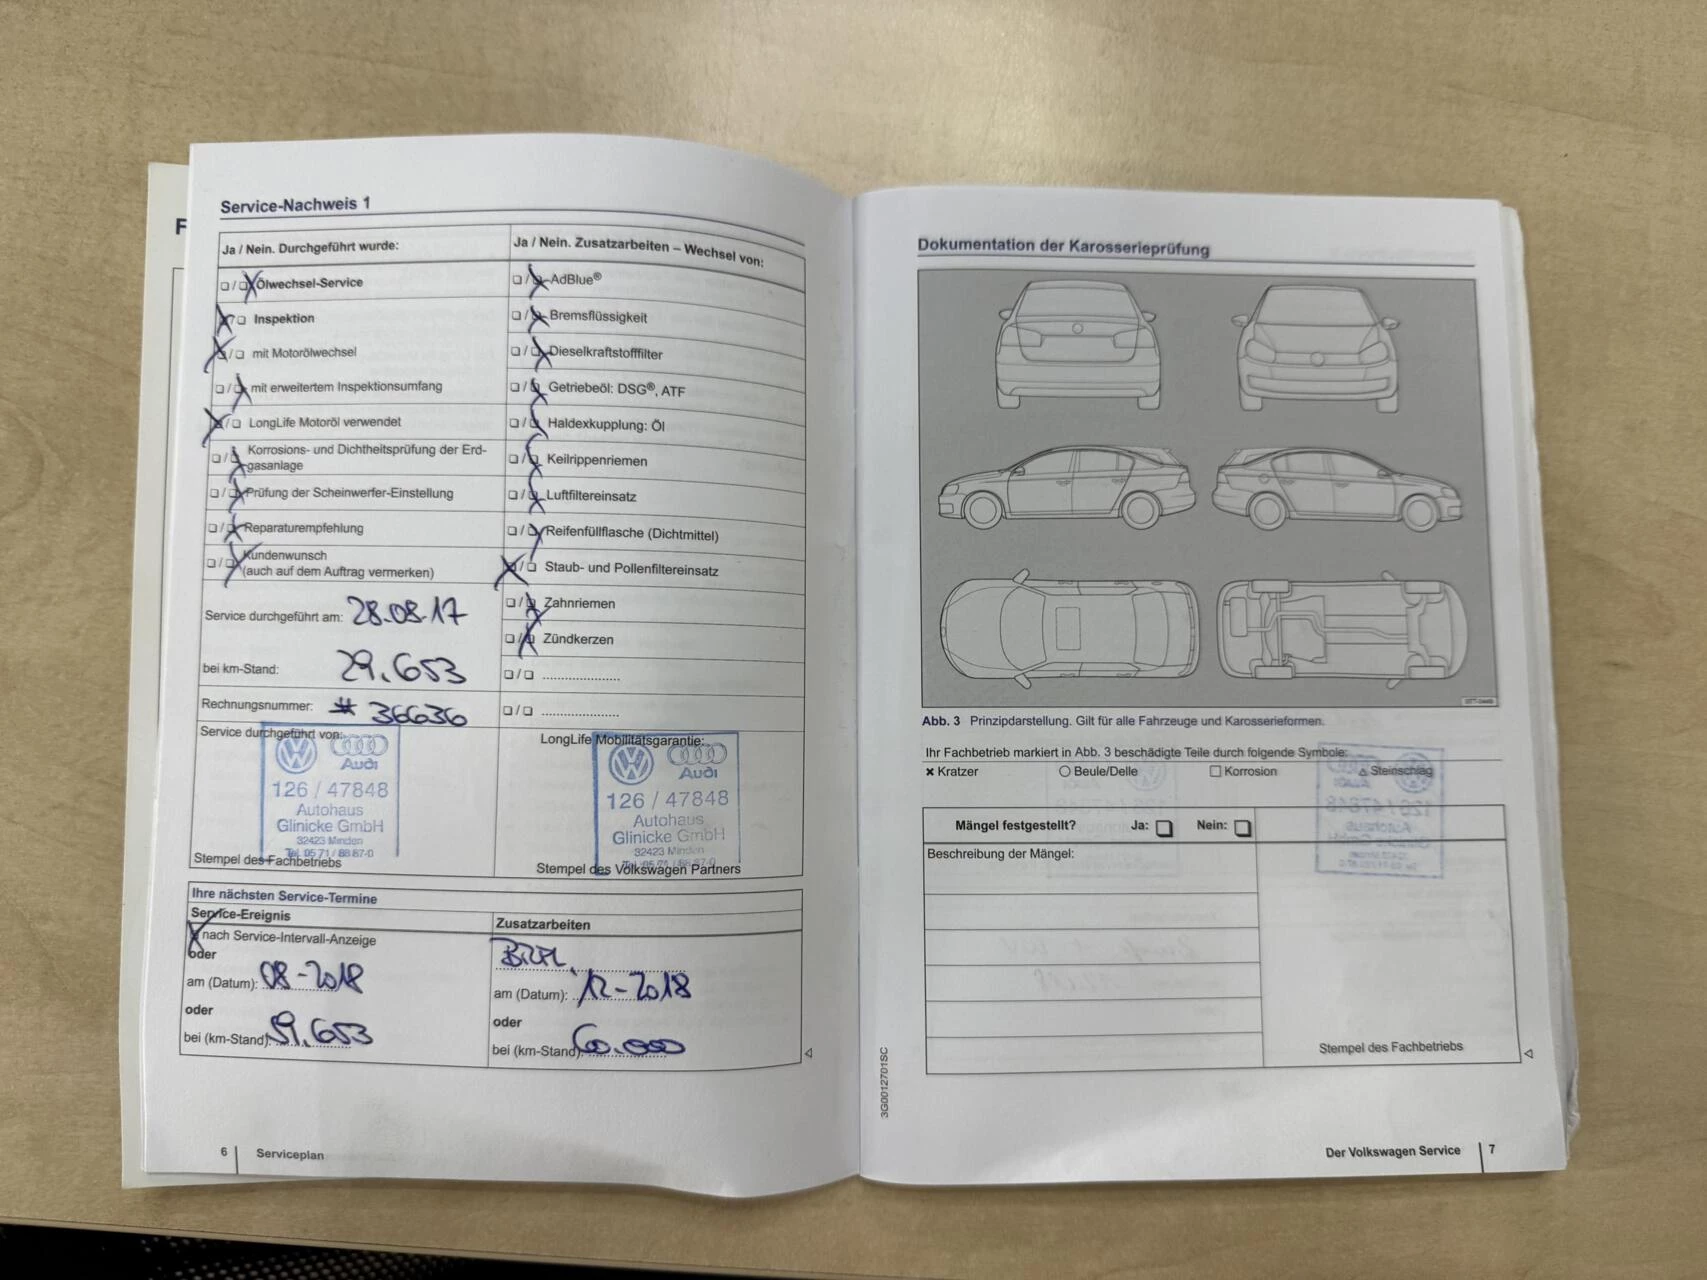 F
Service-Nachweis 1
Ja / Nein. Durchgeführt wurde:
Ölwechsel-Service
Inspektion
mit Motorölwechsel
mit erweitertem Inspektionsumfang
LongLife Motoröl verwendet
Korrosions- und Dichtheitsprüfung der Erd-
gasanlage
Prüfung der Scheinwerfer-Einstellung
Reparaturempfehlung
Kundenwunsch
(auch auf dem Auftrag vermerken)
Service durchgeführt am: 28.08.17
bei km-Stand: 29.653
Rechnungsnummer: # 36636
Service durchgeführt von:
Audi
126 / 47848
Autohaus
Glinicke GmbH
32423 Minden
Tel. 05 71 / 88 87-0
Stempel des Fachbetriebs
Ja / Nein. Zusatzarbeiten – Wechsel von:
AdBlue®
Bremsflüssigkeit
Dieselkraftstofffilter
Getriebeöl: DSG®, ATF
Haldexkupplung: Öl
Keilrippenriemen
Luftfiltereinsatz
Reifenfüllflasche (Dichtmittel)
Staub- und Pollenfiltereinsatz
Zahnriemen
Zündkerzen
LongLife Mobilitätsgarantie:
Audi
126 / 47848
Autohaus
Glinicke GmbH
32423 Minden
Tel. 05 71 / 88 87-0
Stempel des Volkswagen Partners
Ihre nächsten Service-Termine
Service-Ereignis
nach Service-Intervall-Anzeige
oder
am (Datum): 08-2018
oder
bei (km-Stand): 59.653
Zusatzarbeiten
am (Datum): 12-2018
oder
bei (km-Stand): 60.000
6 Serviceplan
Dokumentation der Karosserieprüfung
Abb. 3 Prinzipdarstellung. Gilt für alle Fahrzeuge und Karosserieformen.
Ihr Fachbetrieb markiert in Abb. 3 beschädigte Teile durch folgende Symbole:
Kratzer Beule/Delle Korrosion Steinschlag
Mängel festgestellt? Ja: Nein:
Beschreibung der Mängel:
Stempel des Fachbetriebs
3G0012701SC
Der Volkswagen Service 7